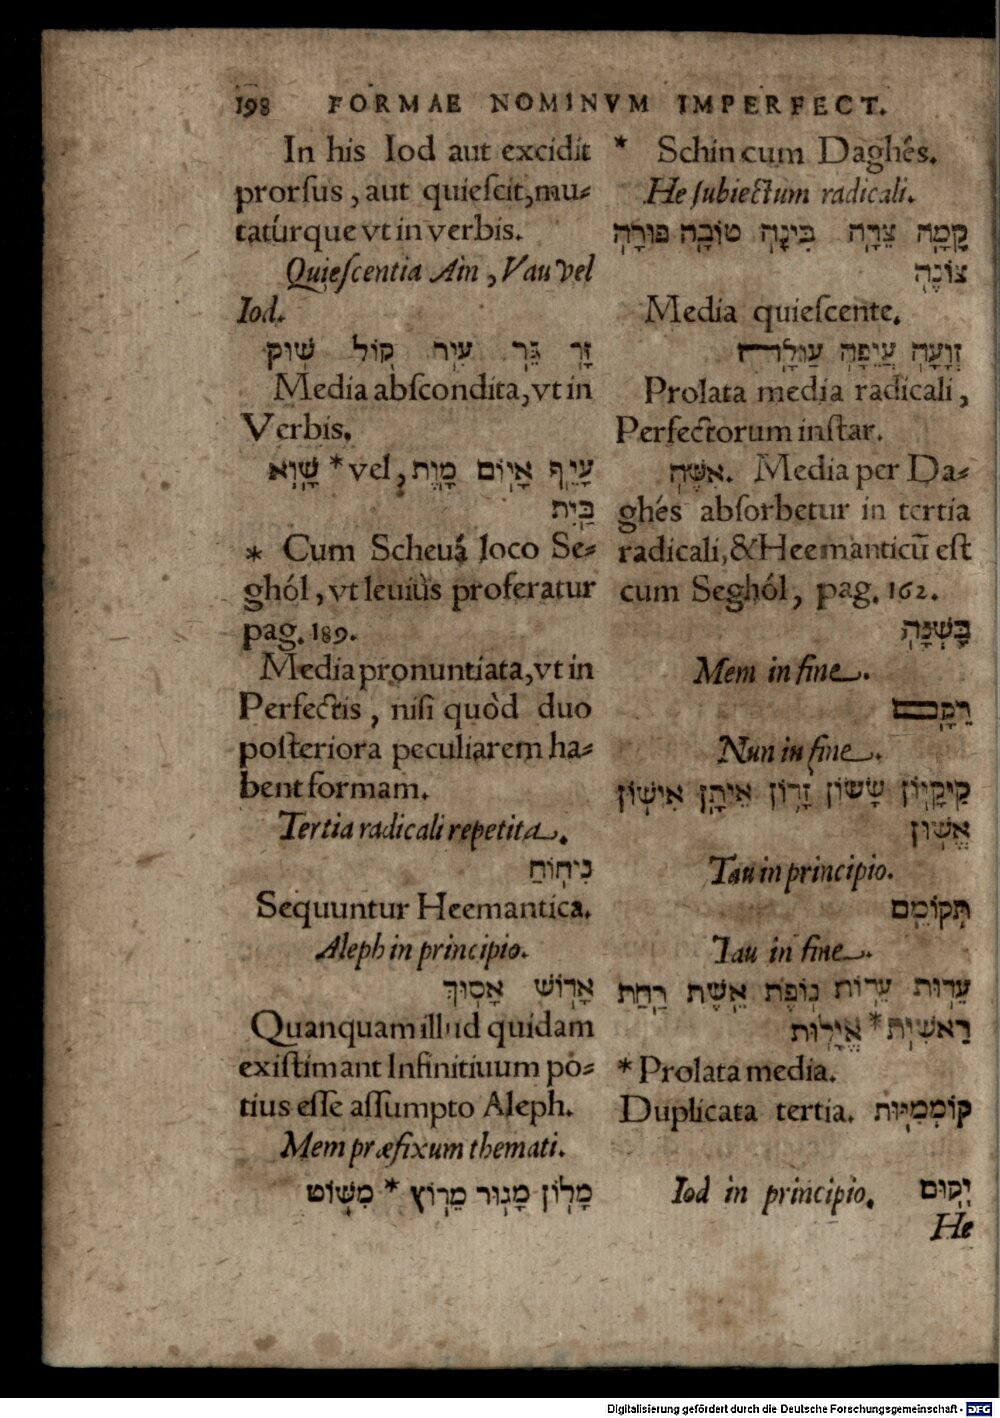 198 FORMAE NOMINVM IMPERFECT.
In his Iod aut excidit
prorſus, aut quieſcit, mu⸗
tatúrque vt in verbis.
Quieſcentia Ain, Vau vel
Iod.
זָר גֵּר עִיר קוֹל שׁוּק
Media abſcondita, vt in
Verbis.
עָיֵף אָיוֹם מָוֶת, vel * שָׁוְא
בַּיִת
* Cum Scheuá loco Se⸗
ghól, vt leuiùs proferatur
pag. 189.
Media pronuntiata, vt in
Perfectis, niſi quòd duo
poſteriora peculiarem ha⸗
bent formam.
Tertia radicali repetita.
נִיחוֹחַ
Sequuntur Heemantica.
Aleph in principio.
אָדוֹשׁ אָסוּךְ
Quanquam illud quidam
exiſtimant Infinitiuum po⸗
tius eſſe aſſumpto Aleph.
Mem præfixum themati.
מָלוֹן מָגוּר מֵרוֹץ * מִשּׁוֹט
* Schin cum Daghés.
He ſubiectum radicali.
קָמָה צֵדָה בִּינָה טוֹבָה פּוּרָה
צוֹנֶה
Media quieſcente.
זְוָעָה עֲיֵפָה עַוְלָה
Prolata media radicali,
Perfectorum inſtar.
אִשֶּׁה. Media per Da⸗
ghés abſorbetur in tertia
radicali, & Heemanticũ eſt
cum Seghól, pag. 162.
בָּשְׁנָה
Mem in fine.
רֵקָם
Nun in fine.
קִיקָיוֹן שָׂשׂוֹן זָרוֹן אֵיתָן אִישׁוֹן
אֱשׁוּן
Tau in principio.
תְּקוֹמֵם
Tau in fine.
עֵדוּת עֵדוֹת נוֹפֶת אֵשֶׁת רַחַת
רֵאשִׁית * אֱיָלוּת
* Prolata media.
Duplicata tertia. קוֹמְמִיּוּת
Iod in principio. יְקוּם
He
Digitalisierung gefördert durch die Deutsche Forschungsgemeinschaft - DFG